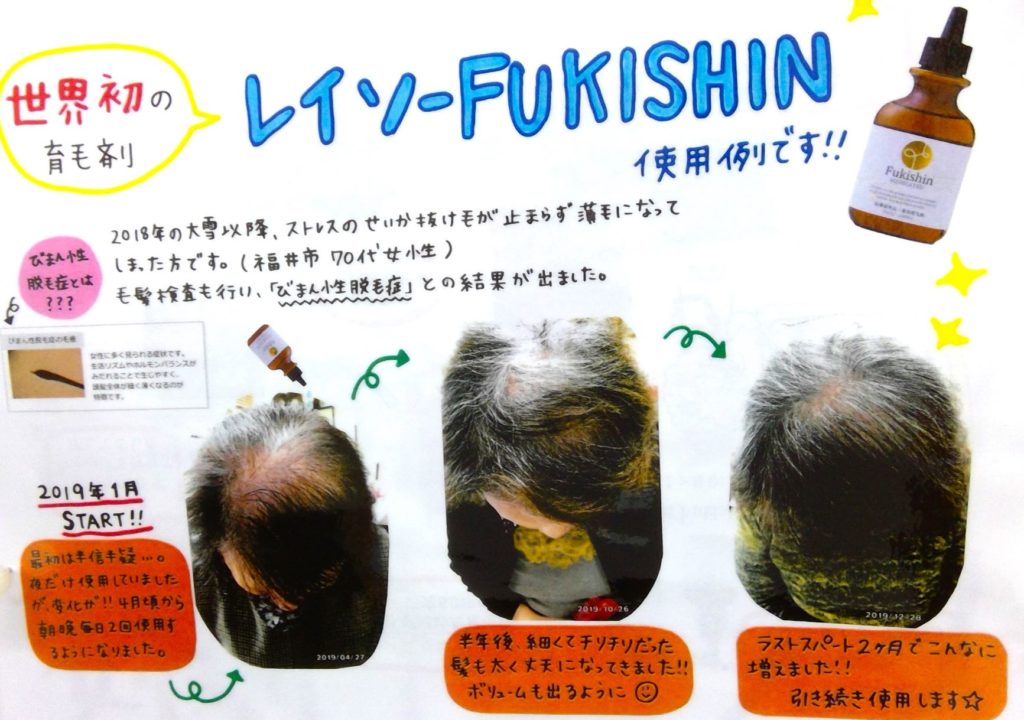 世界初の
育毛剤
レイソーFUKISHIN
使用例です!!
Fukishin
2018年の大雪以降、ストレスのせいか抜け毛が止まらず薄毛になって
しまった方です。(福井市 70代女性)
毛髪検査も行い、「びまん性脱毛症」との結果が出ました。
びまん性
脱毛症とは
???
びまん性脱毛症の毛根
女性に多く見られる症状です。
生活リズムやホルモンバランスが
みだれることで生じやすく、
頭髪全体が細く薄くなるのが
特徴です。
2019年1月
START!!
最初は半信半疑…。
夜だけ使用していました
が、変化が!! 4月頃から
朝晩毎日2回使用す
るようになりました。
2019/04/27
2019/10/26
半年後、細くてチリチリだった
髪も太く丈夫になってきました!!
ボリュームも出るように☺
2019/12/28
ラストスパート2ヶ月でこんなに
増えました!!
引き続き使用します☆